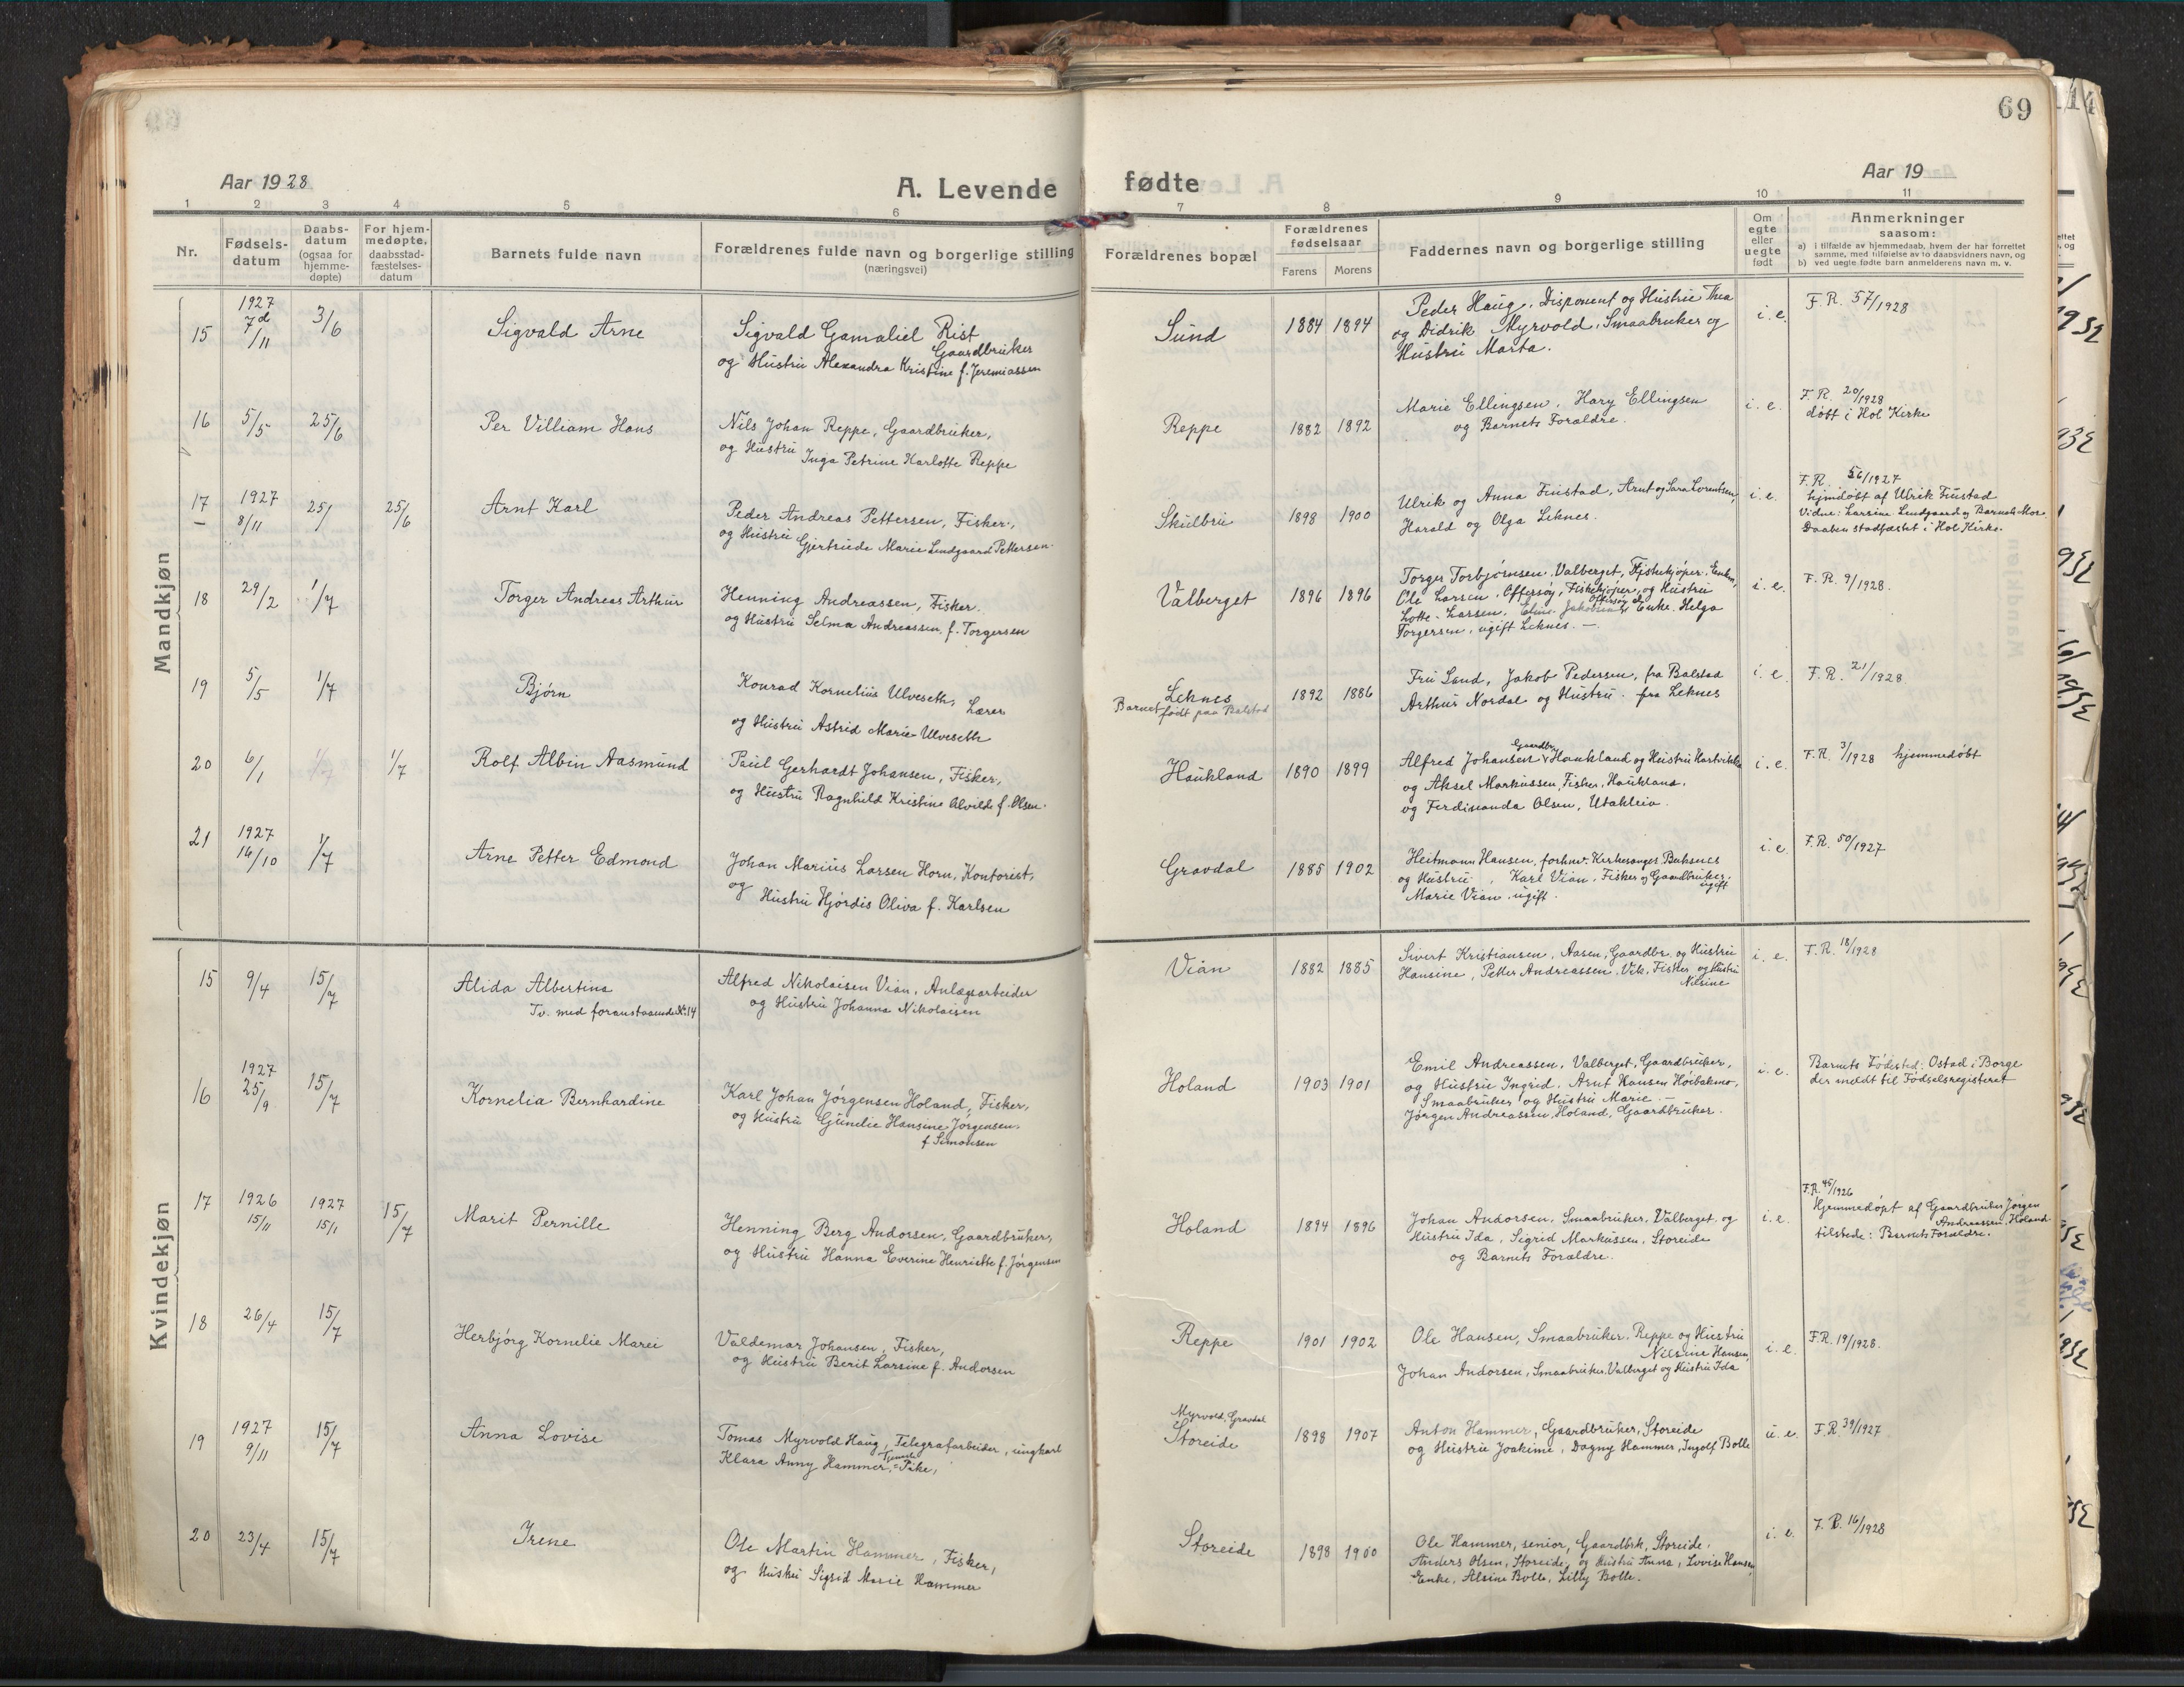 69
Aar 1928
A. Levende fødte
Aar 19
1 2 3 4 5 6 7 8 9 10 11
Nr.
Fødsels-
datum
Daabs-
datum
(ogsaa for
hjemme-
døpte)
For hjem-
medøpte,
daabsstad-
fæstelses-
datum
Barnets fulde navn
Forældrenes fulde navn og borgerlige stilling
(næringsvei)
Forældrenes bopæl
Forældrenes
fødselsaar
Farens Morens
Faddernes navn og borgerlige stilling
Om
egte
eller
uegte
født
Anmerkninger
saasom:
a) i tilfælde av hjemmedaab, hvem der har forrettet
samme, med tilføielse av to daabsvidners navn, og
b) ved uegte født barn anmelderens navn m. v.
Mandkjøn
15
1927
7d/11
3/6
Sigvald Arne
Sigvald Gamaliel Rist
Gaardbruker
og Hustru Alexandra Kristine f. Jeremiassen
Sund
1884 1894
Peder Haug, Disponent og Hustru Thea
og Didrik Myrvold, Smaabruker og
Hustru Marta.
i. e.
F. R. 57/1928
16
5/5
25/6
Per Villiam Hans
Nils Johan Reppe, Gaardbruker,
og Hustru Inga Petrine Karlotte Reppe
Reppe
1882 1892
Marie Ellingsen, Hary Ellingsen
og Barnets Forældre.
i. e.
F. R. 20/1928
døbt i Hol Kirke
17
1927
8/11
25/
25/6
Arnt Karl
Peder Andreas Pettersen, Fisker,
og Hustru Gjertrude Marie Lindgaard Pettersen.
Skulbru
1898 1900
Ulrik og Anna Finstad, Arnt og Sara Lorentsen,
Harald og Olga Leknes.
i. e.
F. R. 56/1927
hjmdøbt af Ulrik Finstad
Vidne: Larsine Lindgaard og Barnets Mor
Daaben stadfæstet i Hol Kirke.
18
29/2
1/7
Torger Andreas Arthur
Henning Andreassen, Fisker.
og Hustru Selma Andreassen, f. Torgersen
Valberget
1896 1896
Torger Torbjørnsen, Valberget, Fiskekjøper, Enkm,
Ole Larsen, Offersøy, Fiskekjøper, og Hustru
Lotte Larsen, Jakobsen Offersøy Enke. Helga
Torgersen, ugift Leknes. —
i. e.
F. R. 9/1928.
19
5/5
1/7
Bjørn
Konrad Kornelius Ulveseth, Lærer
og Hustru Astrid Marie Ulveseth
Leknes
Barnet født paa Balstad
1892 1886
Fru Lund, Jakob Pedersen, fra Balstad
Arthur Nordal og Hustru. fra Leknes
i. e.
F. R. 21/1928
20
6/1
1/7
1/7
Rolf Albin Aasmund
Paul Gerhardt Johansen, Fisker,
og Hustru Ragnhild Kristine Alvilde f. Olsen.
Haukland
1890 1899
Gaardbr.
Alfred Johansen Haukland og Hustru Hartvikka
og Aksel Markussen, Fisker, Haukland.
og Ferdinanda Olsen, Utakleiv.
i. e.
F. R. 3/1928 hjemmedøbt
21
1927
16/10
1/7
Arne Petter Edmond
Johan Marius Larsen Horn, Kontorist,
og Hustru Hjørdis Oliva f. Karlsen
Gravdal
1885 1902
Heitmann Hansen, forhnv. Kirkesanger Buksnes
og Hustru, Karl Vian, Fisker og Gaardbruker, ugift
Marie Vian, ugift.
i. e.
F. R. 50/1927
Kvindekjøn
15
9/4
15/7
Alida Albertina
Tv. med foranstaaende No 14
Alfred Nikolaisen Vian, Anlægsarbeider
og Hustru Johanna Nikolaisen
Vian
1882 1885
Sivert Kristiansen, Aasen, Gaardbr. og Hustru
Hansine, Petter Andreassen, Vik, Fisker og Hustru
Nilsine
i. e.
F. R. 18/1928
16
1927
25/9
15/7
Kornelia Bernhardine
Karl Johan Jørgensen Holand, Fisker,
og Hustru Gunelie Hansine Jørgensen.
f. Simonsen
Holand
1903 1901
Emil Andreassen, Valberget, Gaardbruker,
og Hustru Ingrid. Arnt Hansen Høibakmo,
Smaabruker og Hustru Marie. —
Jørgen Andreassen, Holand, Gaardbruker.
i. e.
Barnets Fødested: Ostad i Borge
der meldt til Fødselsregisteret
17
1926
15/11
1927
15/1
15/7
Marit Pernille
Henning Berg Andorsen, Gaardbruker,
og Hustru Hanna Everine Henriette f. Jørgensen
Holand
1894 1896
Johan Andorsen, Smaabruker, Valberget, og
Hustru Ida, Sigrid Markussen, Storeide
og Barnets Forældre.
i. e.
F.R. 45/1926
Hjemmedøpt af Gaardbruker Jørgen
Andreassen, Holand
tilstede: Barnets Forældre.
18
26/4
15/7
Herbjørg Kornelie Marei
Valdemar Johansen, Fisker,
og Hustru Berit Larsine f. Andorsen
Reppe
1901 1902
Ole Hansen, Smaabruker, Reppe og Hustru
Nilsine Hansen,
Johan Andorsen, Smaabruker, Valberget og Hustru Ida
i. e.
F.R. 19/1928.
19
1927
9/11
15/7
Anna Lovise
Tomas Myrvold Haug, Telegrafarbeider, ungkarl
Klara Anny Hammer, Pike,
Myrvold, Gravdal
Storeide
1898 1907
Anton Hammer, Gaardbruker, Storeide
og Hustru Joakime, Dagny Hammer, Ingolf Bolle
u. e.
F. R. 39/1927
20
23/4
15/7
Irene
Ole Martin Hammer, Fisker,
og Hustru Sigrid Marie Hammer
Storeide
1898 1900
Ole Hammer, senior, Gaardbrk, Storeide,
Anders Olsen, Storeide, og Hustru Anna, Lovise Hansen,
Enke, Alsine Bolle, Lilly Bolle.
i. e.
F. R. 16/1928